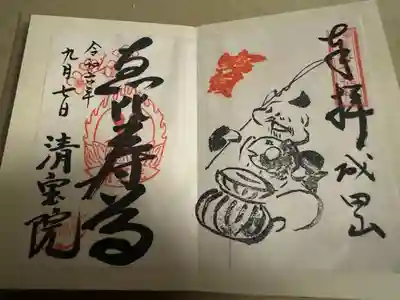 奉拝 成田山
恵比寿尊
令和六年
九月七日
清宝院